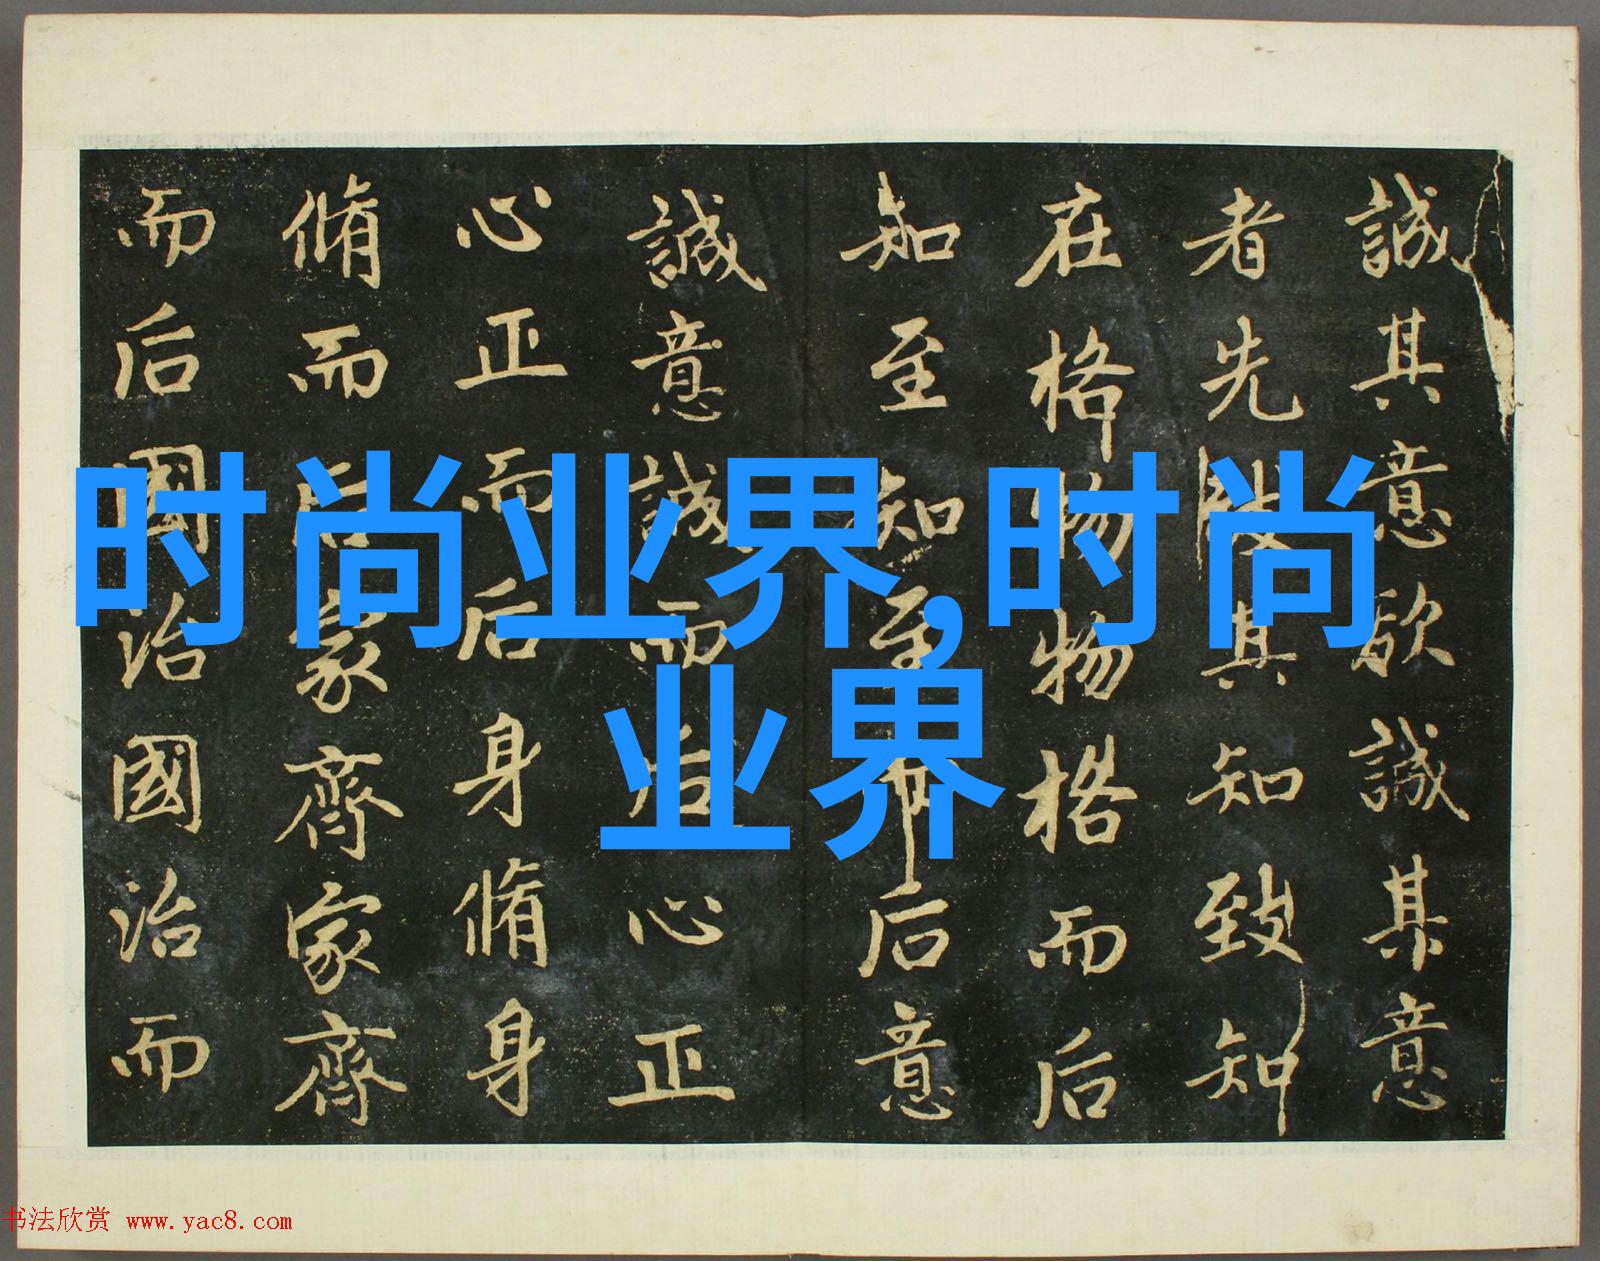 誠其意欲誠其意
者先致其知致知
在格物物格而后
知至知至而后意
誠意誠而后心正
心正而后身脩身
脩而后家齊家齊
而后國治國治而
时尚业界,时尚
业界
书法欣赏 www.yac8.com